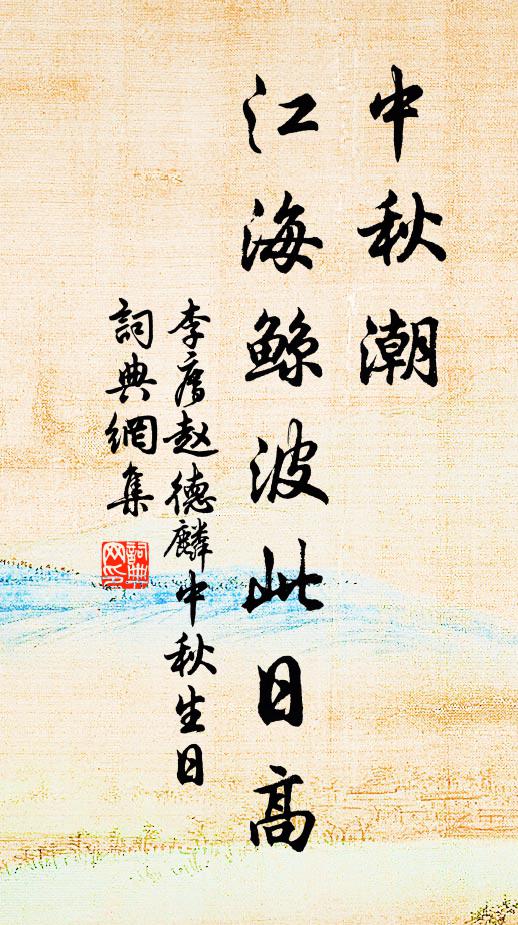 中秋潮
江海鲸波此日高
李廌赵德麟中秋生日
詞典網集
詞典